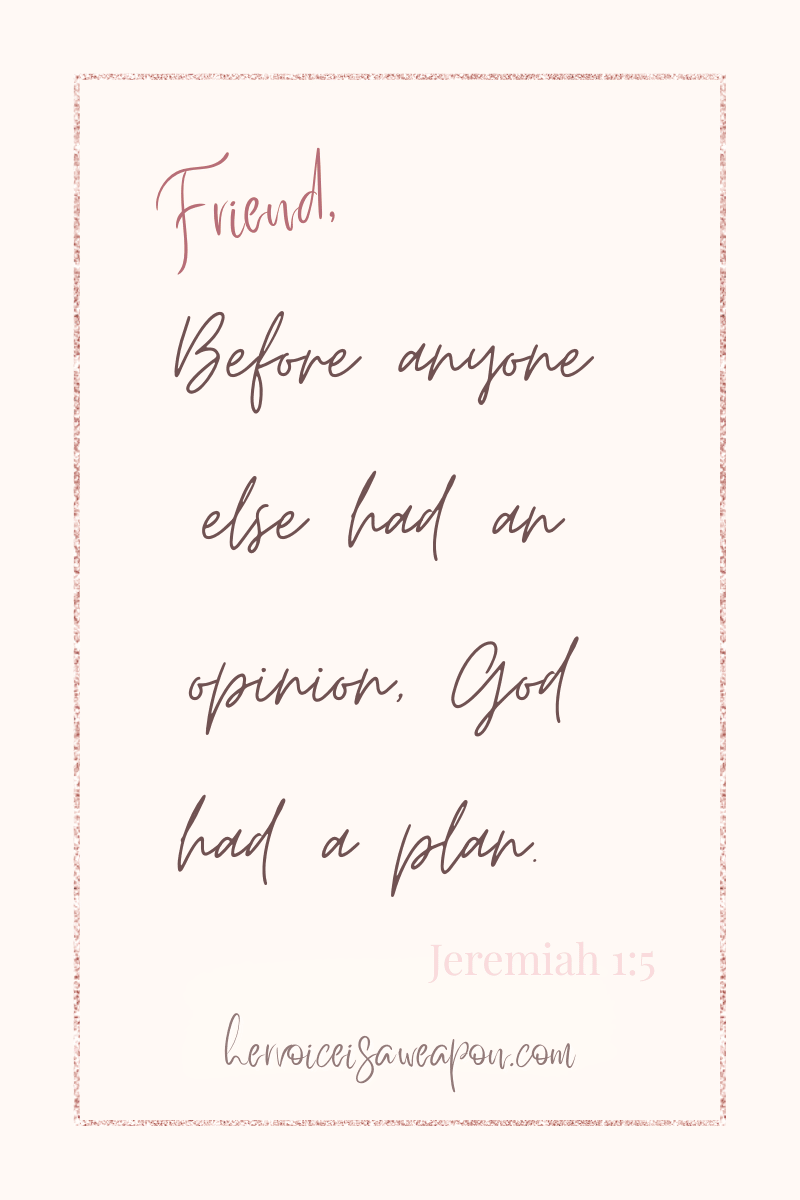 Friend,
Before anyone
else had an
opinion, God
had a plan.
Jeremiah 1:5
hervoiceisaweapon.com